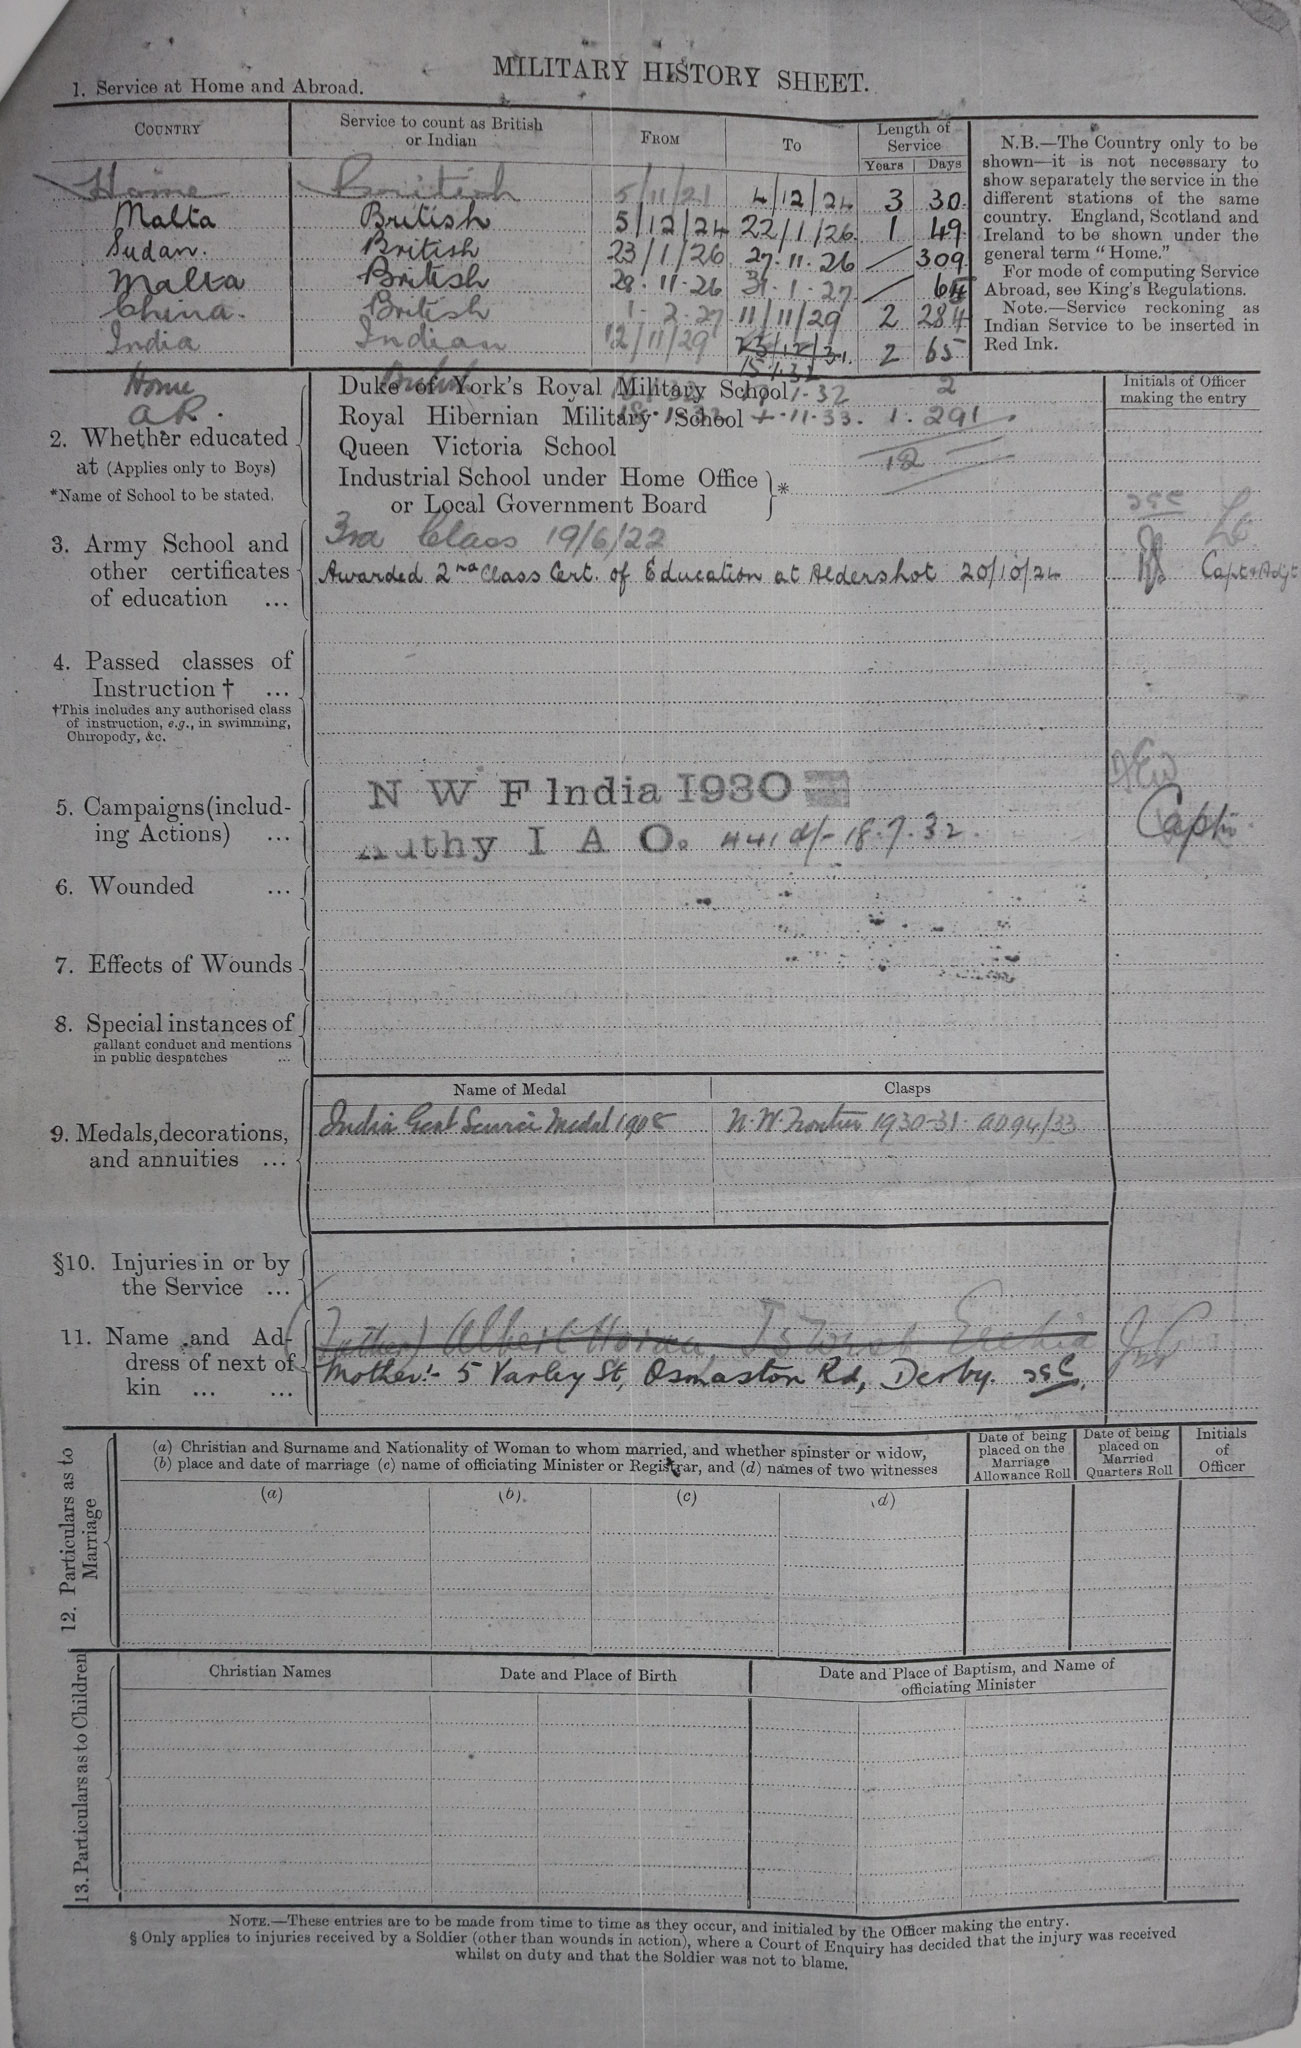 MILITARY HISTORY SHEET.
1. Service at Home and Abroad.
COUNTRY
Service to count as British or Indian
FROM
To
Length of Service
Years Days
N.B.—The Country only to be shown—it is not necessary to show separately the service in the different stations of the same country. England, Scotland and Ireland to be shown under the general term "Home."
For mode of computing Service Abroad, see King's Regulations.
Note.—Service reckoning as Indian Service to be inserted in Red Ink.
Home British 5/11/21 4/12/24 3 30
Malta British 5/12/24 22/1/26 1 49
Sudan. British 23/1/26 27.11.26 / 309
Malta British 28.11.26 31.1.27 / 65
China. British 1.2.27 11/11/29 2 284
India Indian 12/11/29 23/12/31 2 65
15.1.32
Home British 1.32 2
AR. 18.1.32 11.33. 1. 291
12
Initials of Officer making the entry
2. Whether educated at (Applies only to Boys)
*Name of School to be stated.
Duke of York's Royal Military School
Royal Hibernian Military School
Queen Victoria School
Industrial School under Home Office or Local Government Board } *
3. Army School and other certificates of education ...
3rd Class 19/6/22
Awarded 2nd Class Cert. of Education at Aldershot 20/10/24 Capt & Adjt
4. Passed classes of Instruction † ...
†This includes any authorised class of instruction, e.g., in swimming, Chiropody, &c.
5. Campaigns (including Actions) ...
N W F India 1930
Authy I A O. 441 d/- 18.7.32. Capt.
6. Wounded ...
7. Effects of Wounds
8. Special instances of gallant conduct and mentions in public despatches ...
9. Medals, decorations, and annuities ...
Name of Medal
Clasps
India Genl Service Medal 1908 N.W. Frontier 1930-31 AO 94/33
§10. Injuries in or by the Service ...
11. Name and Address of next of kin ... ...
(Father) Albert
Mother:- 5 Varley St, Osmaston Rd, Derby.
12. Particulars as to Marriage
(a) Christian and Surname and Nationality of Woman to whom married, and whether spinster or widow,
(b) place and date of marriage (c) name of officiating Minister or Registrar, and (d) names of two witnesses
Date of being placed on the Marriage Allowance Roll
Date of being placed on Married Quarters Roll
Initials of Officer
(a) (b). (c) (d)
13. Particulars as to Children
Christian Names
Date and Place of Birth
Date and Place of Baptism, and Name of officiating Minister
NOTE.—These entries are to be made from time to time as they occur, and initialed by the Officer making the entry.
§ Only applies to injuries received by a Soldier (other than wounds in action), where a Court of Enquiry has decided that the injury was received
whilst on duty and that the Soldier was not to blame.